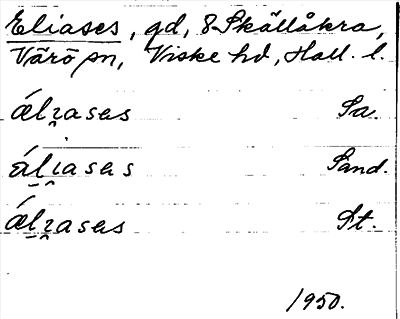 Eliases, gd, 8 Skällåkra,
Värö sn, Viske hd, Hall. l.
álɿases Sa.
áliases Sand.
álɿases St.
1950.